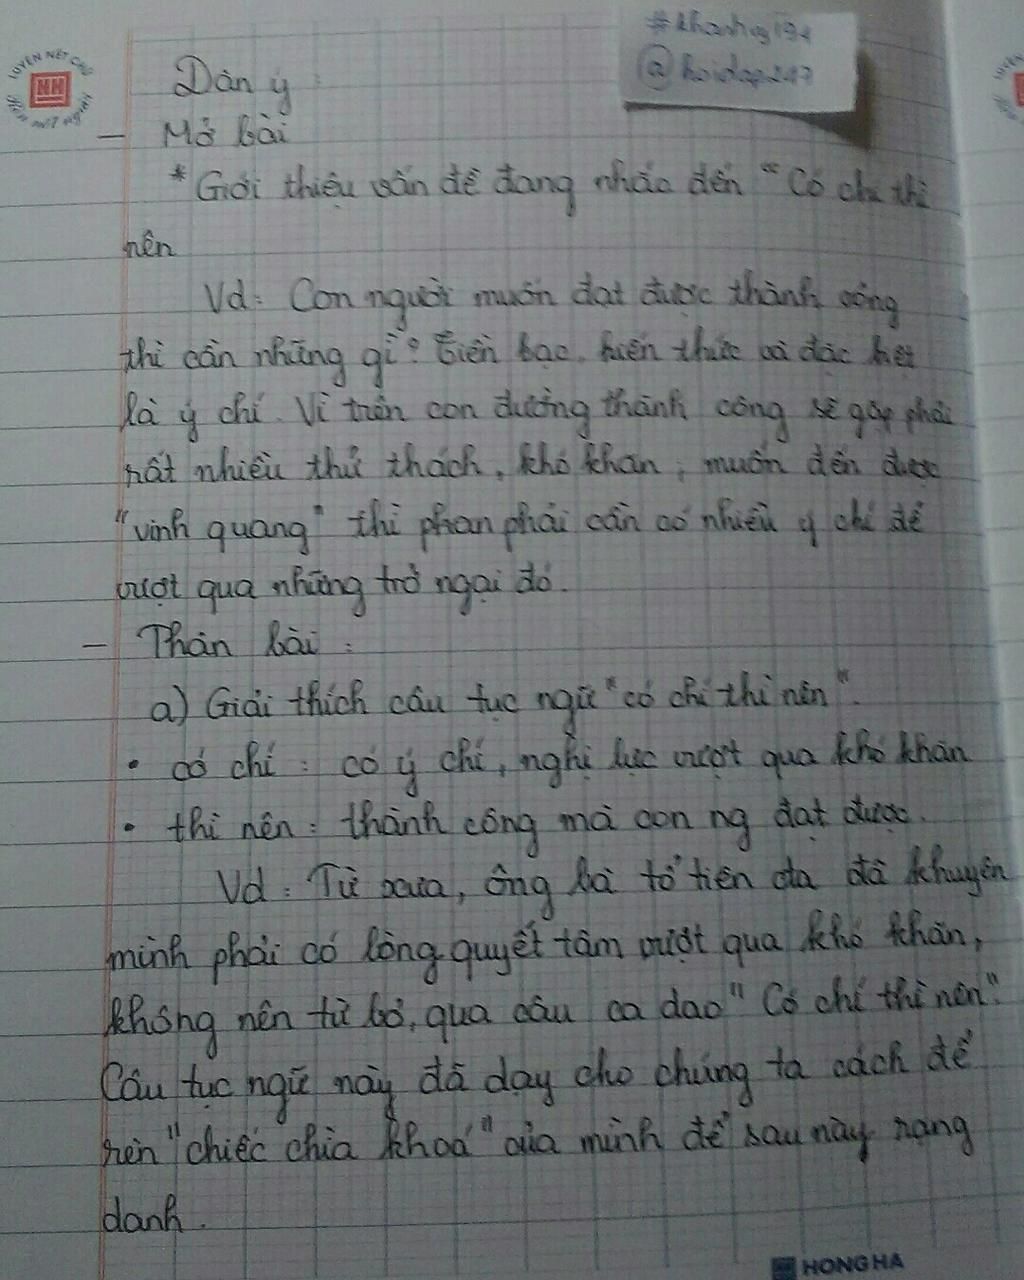 LUYỆN NÉT CHỮ
HH
RÈN NẾT NGƯỜI
#khanhvy194
@hoidap247
Dàn ý :
- Mở bài
* Giới thiệu vấn đề đang nhắc đến "Có chí thì
nên
Vd: Con người muốn đạt được thành công
thì cần những gì? Tiền bạc, kiến thức và đặc biệt
là ý chí. Vì trên con đường thành công sẽ gặp phải
rất nhiều thử thách, khó khăn, muốn đến được
"vinh quang" thì phan phải cần có nhiều ý chí để
vượt qua những trở ngại đó.
- Thân bài :
a) Giải thích câu tục ngữ "có chí thì nên".
• có chí : có ý chí, nghị lực vượt qua khó khăn
• thì nên : thành công mà con ng đạt được.
Vd : Từ xưa, ông bà tổ tiên ta đã khuyên
mình phải có lòng quyết tâm vượt qua khó khăn,
không nên từ bỏ, qua câu ca dao "Có chí thì nên".
Câu tục ngữ này đã dạy cho chúng ta cách để
rèn "chiếc chìa khoá" của mình để sau này rạng
danh.
HONG HA